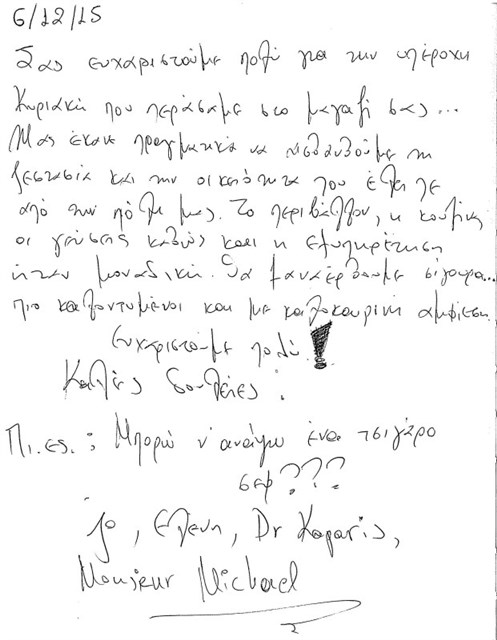 6/12/15
Σας ευχαριστούμε πολύ για την υπέροχη
Κυριακή που περάσαμε στο μαγαζί σας...
Μας έκανε πραγματικά να νοιώθουμε τη
ζεστασιά και την οικειότητα που έλειπε
από την πόλη μας. Το περιβάλλον, η κουζίνα
οι γεύσεις καθώς και η εξυπηρέτηση
ήταν μοναδική. Θα ξαναέρθουμε σίγουρα...
πιο καλοντυμένοι και με καλοκαιρινή αμφίεση
Ευχαριστούμε πολύ!
Καλές δουλειές!
Πι. ες.: Μπορώ ν' ανάψω ένα τσιγάρο
σεφ???
Ελένη, Dr Kaparis,
Monsieur Michael